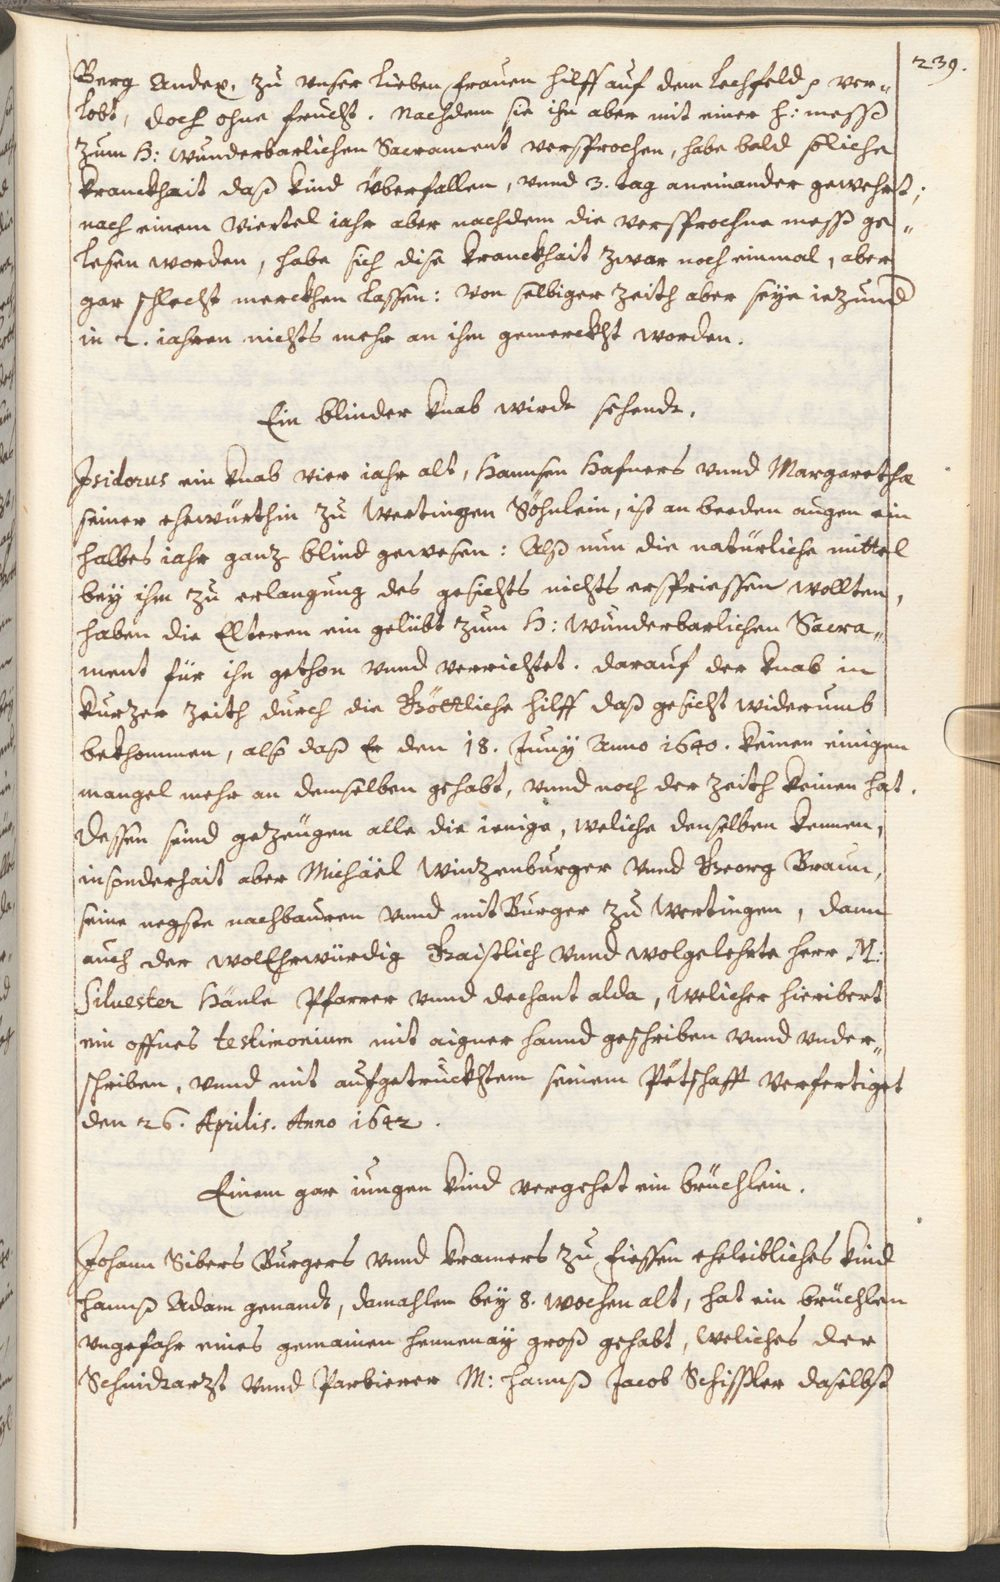 239.
Berg Andex, zu vnser lieben frauen hilff auf dem lechfeld ver„
lobt, doch ohne frucht. Nachdem sie ihn aber mit einer h: messß
zum H: wunderbarlichen Sacrament versprochen, habe bald soliche
kranckhait daß kind überfallen, vnnd 3. tag aneinander gewehrt;
nach einem viertel iahr aber nachdem die versprochne messß ge„
lesen worden, habe sich dise kranckhait zwar noch einmal, aber
gar schlecht merckhen lassen: von selbiger zeith aber seye iezund
in 2. iahren nichts mehr an ihm gemerckht worden.
Ein blinder knab wirdt sehendt.
Isidorus ein knab vier iahr alt, Hannsen Hafners vnnd Margarethæ
seiner ehewürthin zu Wertingen Söhnlein, ist an beeden augen ein
halbes iahr ganz blind gewesen: Alß nun die natürliche mittel
bey ihm zu erlangung des gesichts nichts erspriessen wollten,
haben die Elteren ein gelübt zum H: wunderbarlichen Sacra„
ment für ihn gethon vnnd verrichtet. darauf der knab in
kurzer zeith durch die Göttliche hilff daß gesicht widerumb
bekhommen, also daß Er den 18. Juny Anno 1640. keinen einigen
mangel mehr an demselben gehabt, vnnd noch der zeith keinen hat.
dessen seind gezeugen alle die ienige, weliche denselben kennen,
insonderhait aber Michäel Winzenburger vnnd Georg Braun,
seine negste nachbauren vnnd mit Burger zu Wertingen, dann
auch der wolEhrwürdig Gaistlich vnnd wolgelehrte herr M:
Siluester Hänle Pfarrer vnnd dechant alda, welicher hieribert
ein offnes testimonium mit aigner hannd geschriben vnnd vnder„
schriben, vnnd mit aufgetruckhtem seinem Petschafft verfertiget
den 26. Aprilis. Anno 1642.
Einem gar iungen kind vergehet ein brüchlein.
Johann Sibers Burgers vnnd kramers zu fiessen eheleibliches kind
hannß Adam genandt, damahlen bey 8. wochen alt, hat ein brüchlen
vngefahr eines gemainen hennenay groß gehabt, weliches der
Schnidtarzt vnnd Parbierer M: hannß Jacob Schissler daselbst